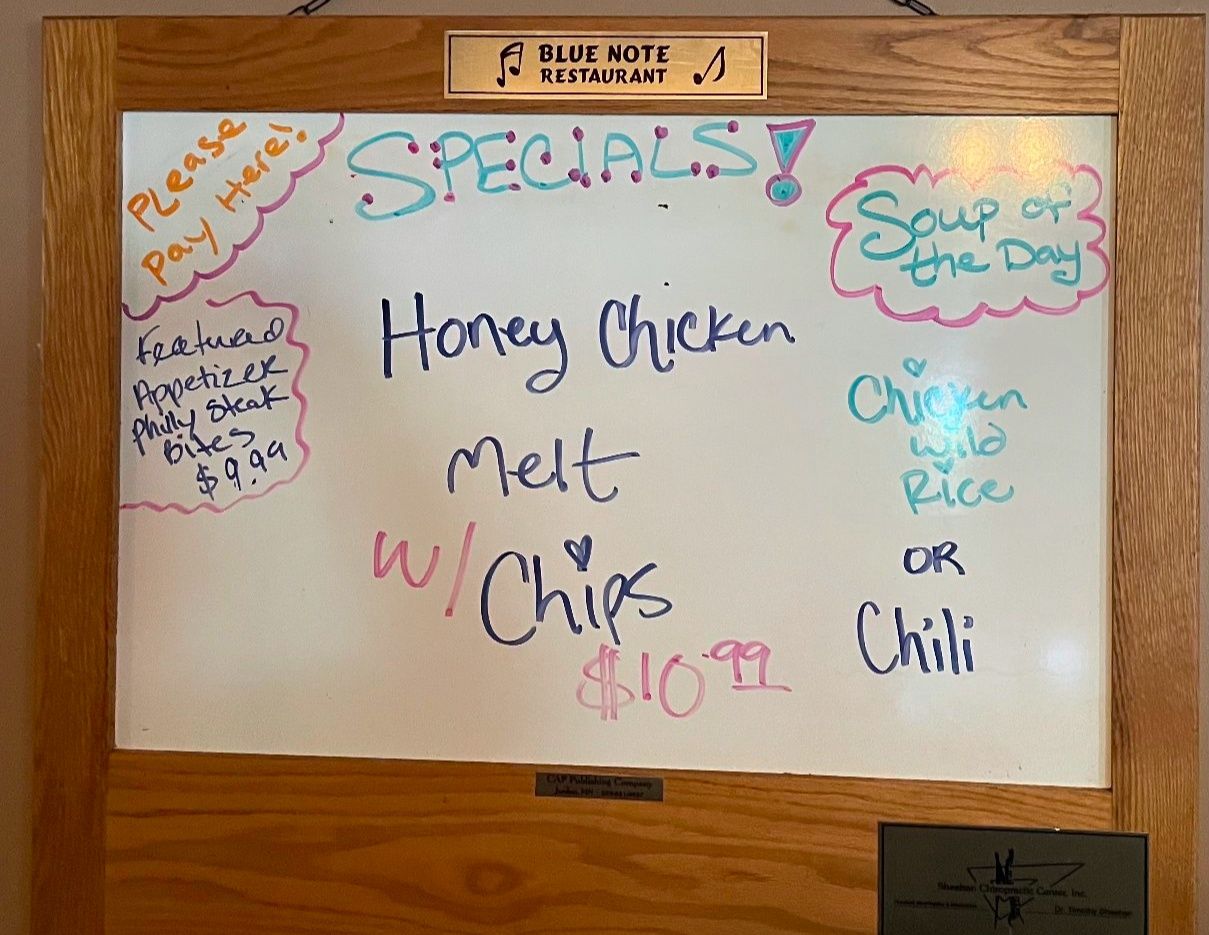 BLUE NOTE
RESTAURANT
Please
Pay Here!
SPECIALS!
Soup of
the Day
Featured
Appetizer
Philly Steak
Bites
$9.99
Honey Chicken
Melt
w/ Chips
$10.99
Chicken
Wild
Rice
OR
Chili
CAP Publishing Company
Jordan, MN
Sheehan Chiropractic Center, Inc.
Dr. Timothy Sheehan